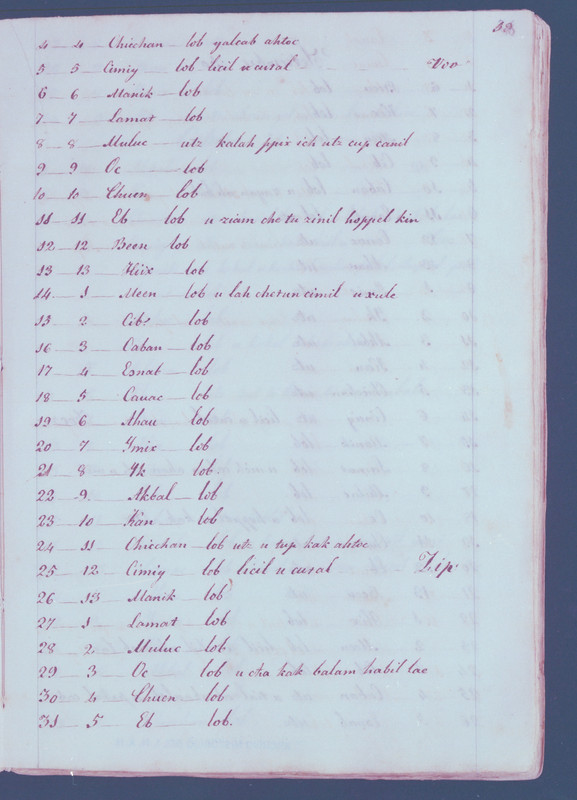 38
4 — 4 Chicchan — lob yalcab ahtoc
5 — 5 Cimiy lob licil u cutal — Voo
6 — 6 Manik — lob
7 — 7 Lamat — lob
8 — 8 Muluc — utz kalah ppix ich utz cup canil
9 — 9 Oc — lob
10 — 10 Chuen — lob
11 — 11 Eb — lob u ziam che tu zinil hoppel kin
12 — 12 Been lob
13 — 13 Hiix — lob
14 — 1 Meen — lob u lah chetun cimil u xule
15 — 2 Cib lob
16 — 3 Caban — lob
17 — 4 Esnab — lob
18 — 5 Cauac — lob
19 — 6 Ahau lob
20 — 7 Ymix — lob
21 — 8 Yk lob
22 — 9 Akbal — lob
23 — 10 Kan lob
24 — 11 Chicchan — lob utz u tup kak ahtoc
25 — 12 Cimiy — lob licil u cutal — Zip
26 — 13 Manik — lob
27 — 1 Lamat — lob
28 — 2 Muluc — lob
29 — 3 Oc lob u cha kak balam habil lae
30 — 4 Chuen — lob
31 — 5 Eb — lob.